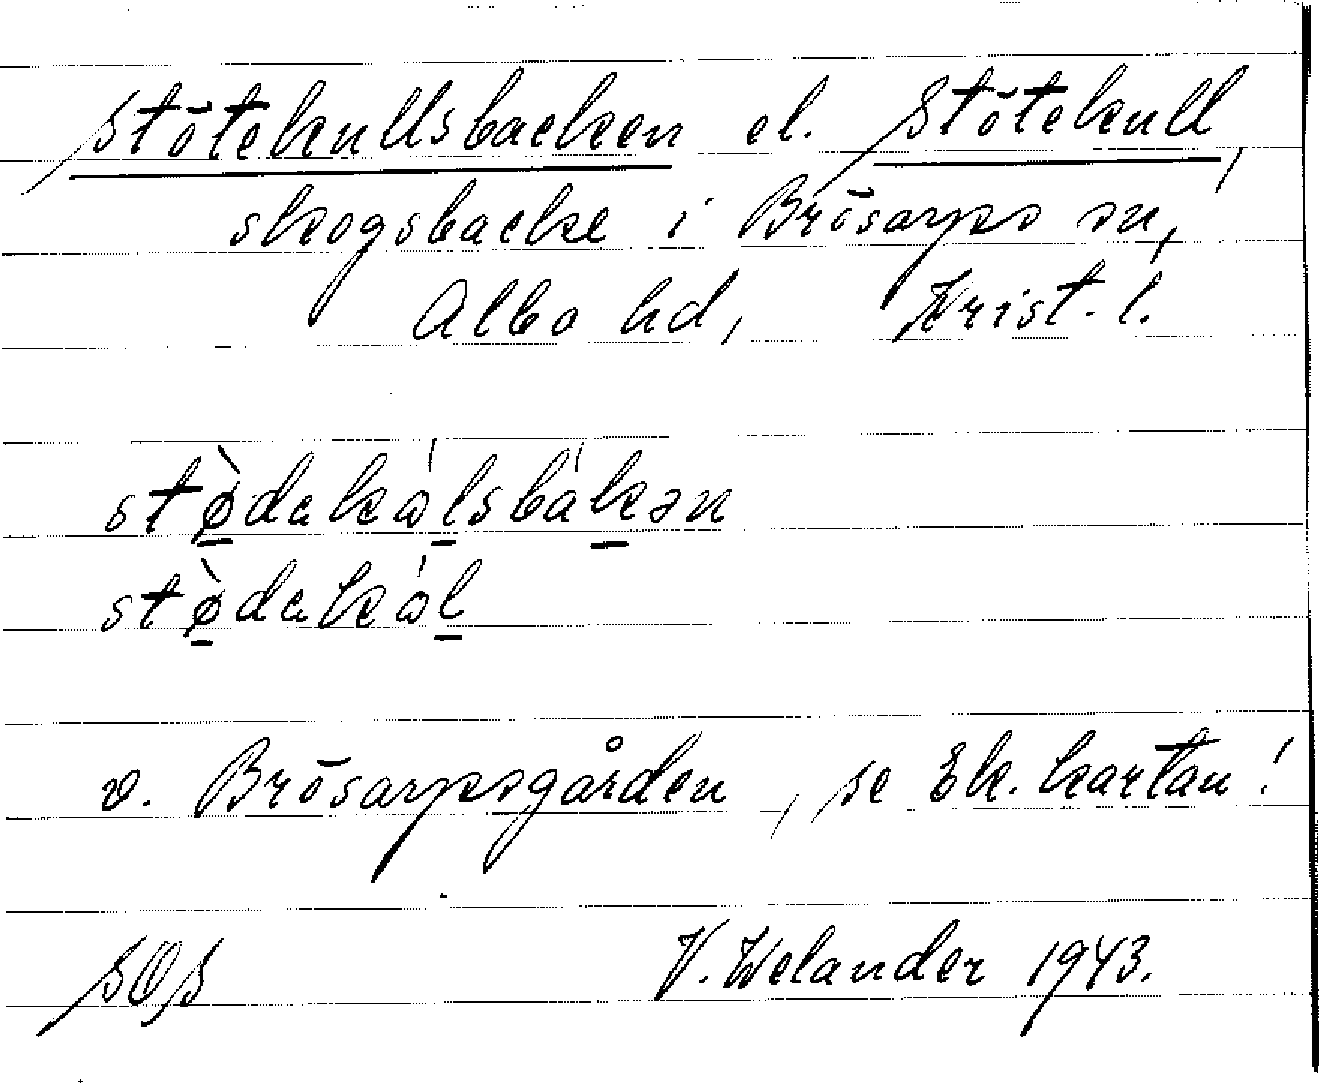 Stötekullsbacken el. Stötekull,
skogsbacke i Brösarps sn,
Albo hd, Krist. l.
stø̀dakώlsbákən
stø̀dakώl
v. Brösarpsgården, se Ek. kartan!
SOS V. Welander 1943.